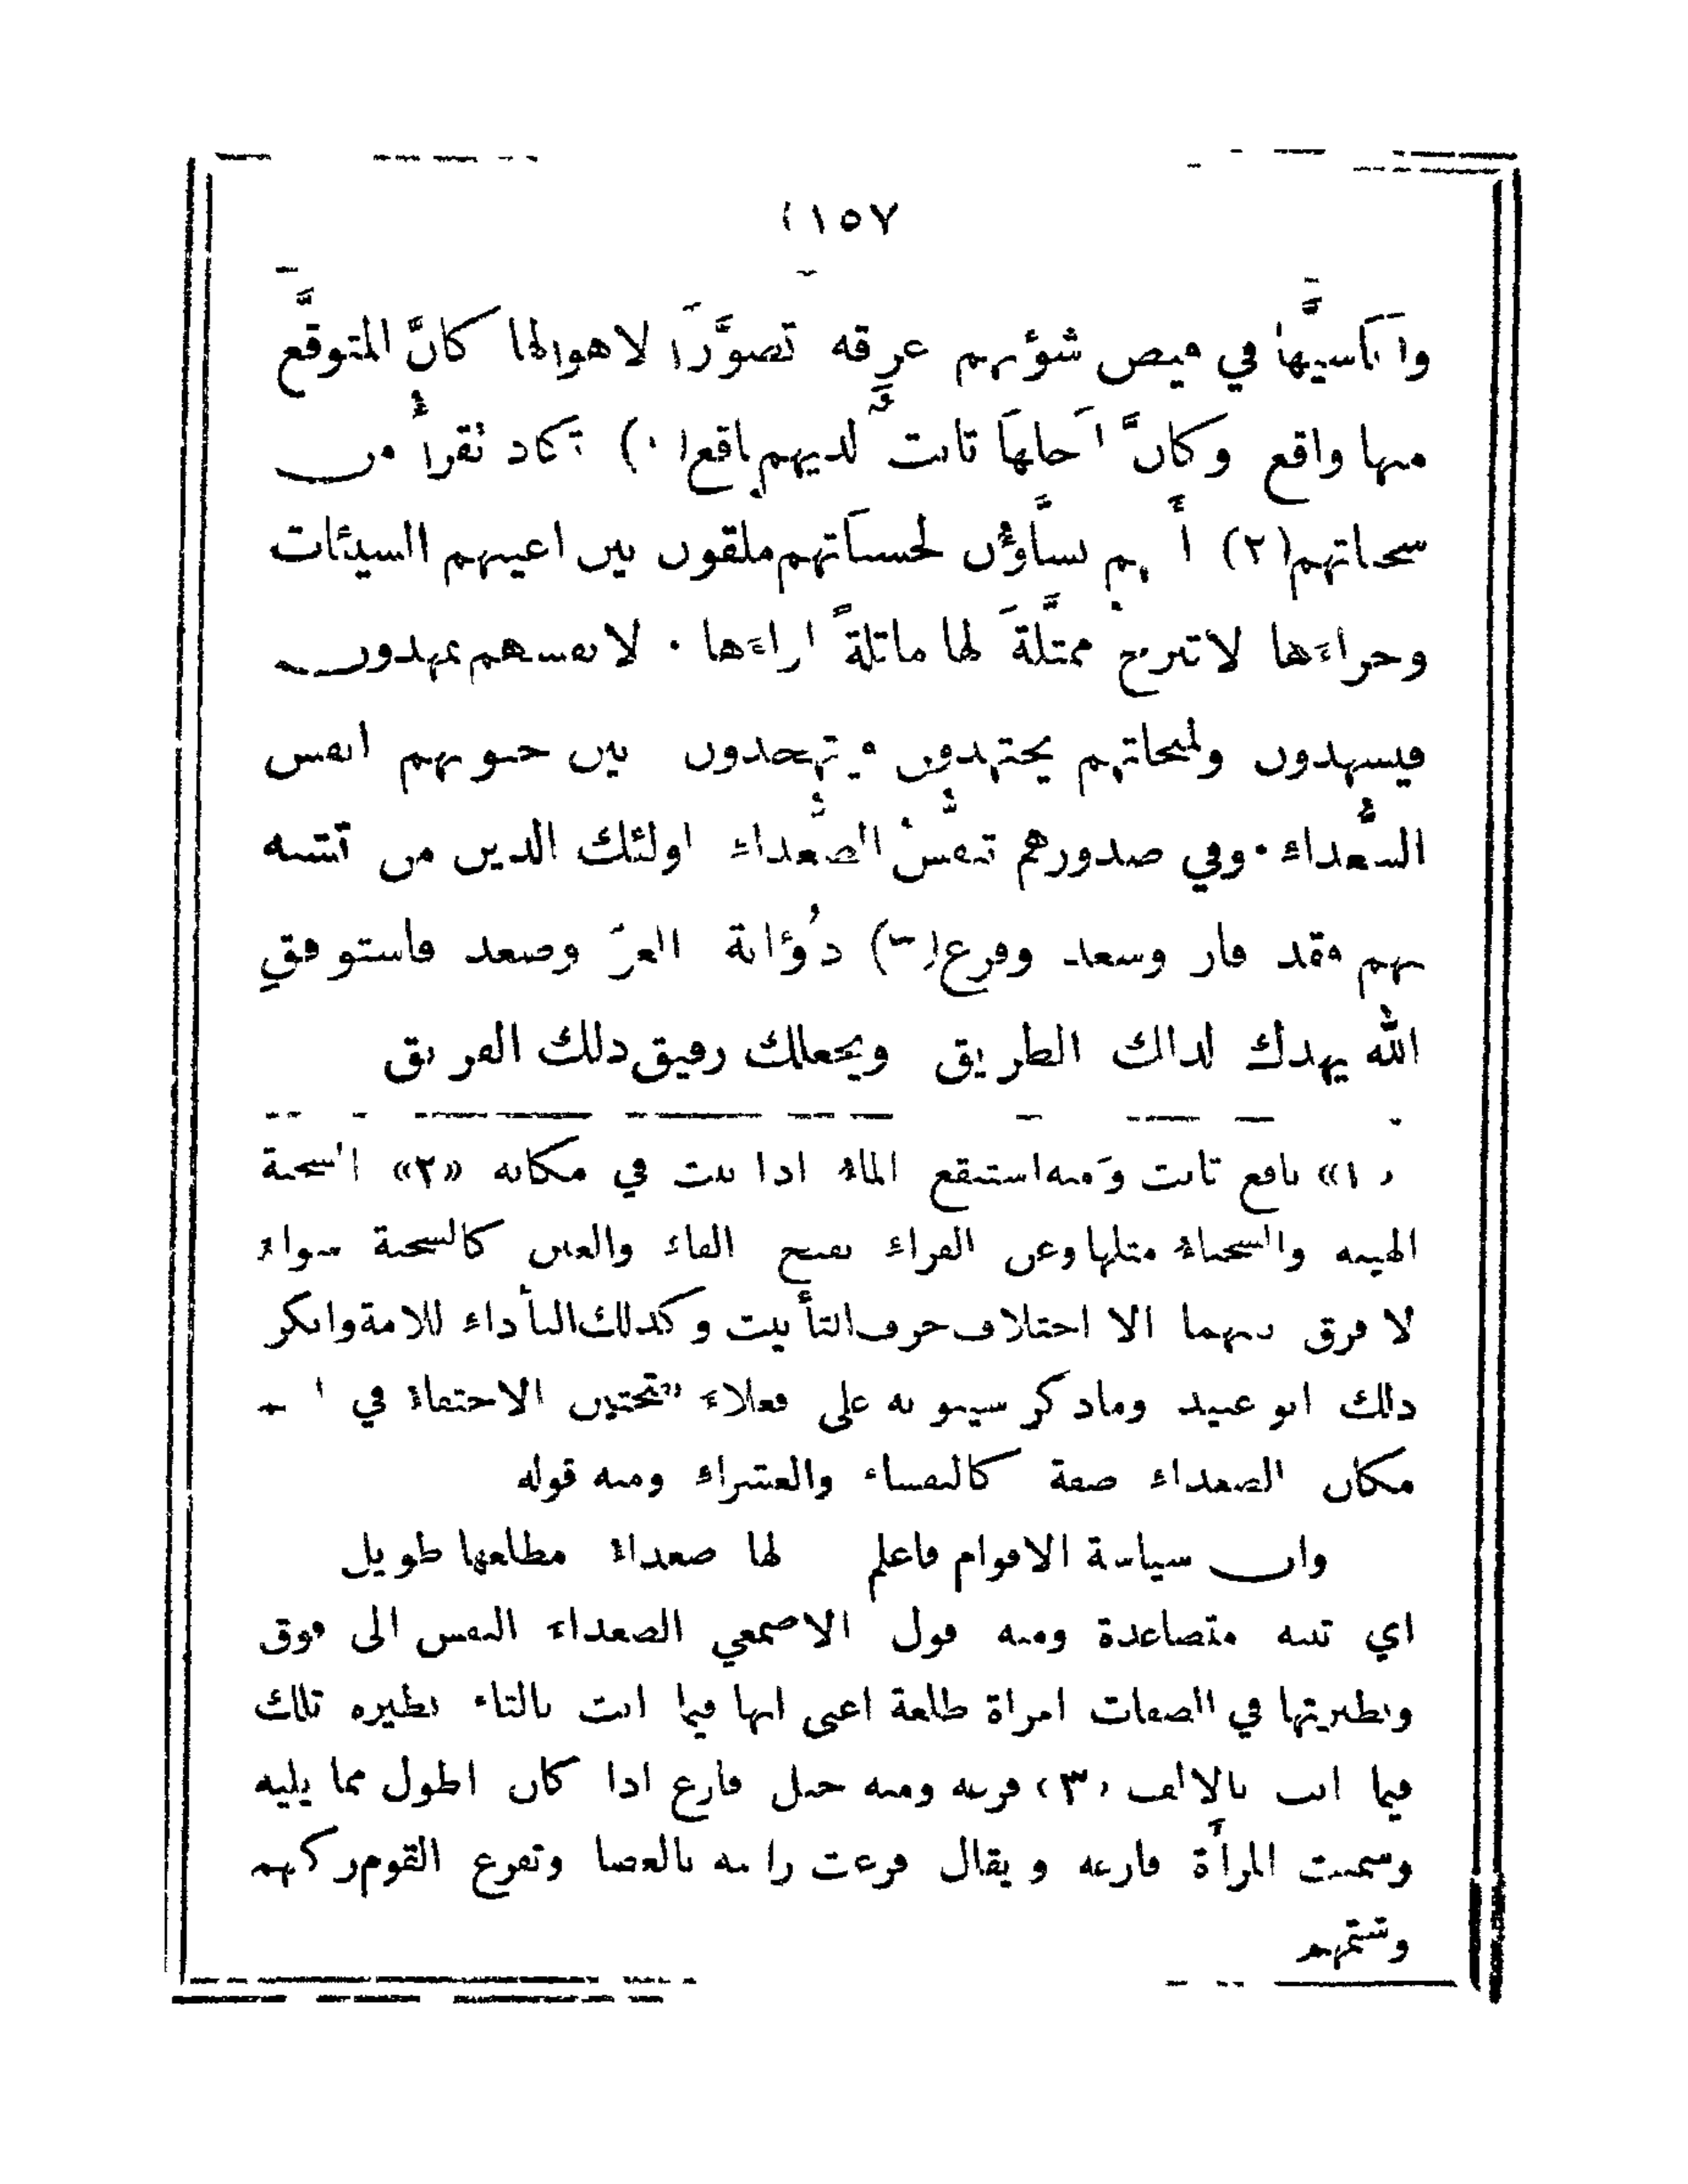 ١٥٧
في فيض شؤنهم غرقه تصوُّرًا لاهوالها كأنَّ المتوقَّع
منها واقع وكأنَّ آجلها ثابت لديهم ناقع(١) تكاد تقرأُ من
سحناتهم(٢) لحسناتهم ملقون بين اعينهم السيئات
وجزاءَها لا تبرح ممثَّلةَ لها ماثلةً ازاءَها . لانفسهم يمهدون
فيسهدون ولمنجاتهم يجتهدون فيتهجدون بين جنوبهم انفس
السُّعداء . وفي صدورهم تنفُّس الصُّعداء اولئك الذين من تشبه
بهم فقد فاز وسعد وفرع(٣) ذُؤابة العزّ وصعد فاستوفق
الله يهدك لذالك الطريق ويجعلك رفيق ذلك الفريق
«١» ناقع ثابت ومنه استنقع الماءُ اذا ثبت في مكانه «٢» السحنة
الهيئه والسحناءُ مثلها وعن الفراء بفتح الفاء والعين كالسحنة سواءٌ
لا فرق بينهما الا اختلاف حرف التأنيث وكذلك الثأداء للامة وانكر
ذلك ابو عبيد وماذكر سيبويه على فعلاءَ بفتحتين الاحتفاءُ في
مكان الصعداء صفة كالنفساء والعشراء ومنه قوله
وان سياسة الاقوام فاعلم لها صعداءُ مطلعها طويل
اي ثنيه متصاعدة ومنه قول الاصمعي الصعداءَ النفس الى فوق
ونظيرتها في الصفات امراة طلعة اعني انها فيما انث بالتاء نظيره تلك
فيما انث بالالف (٣) فرعه ومنه جبل فارع اذا كان اطول مما يليه
وسميت المرأَة فارعه ويقال فرعت راسه بالعصا وتفرع القوم ركبهم
وشتمهم